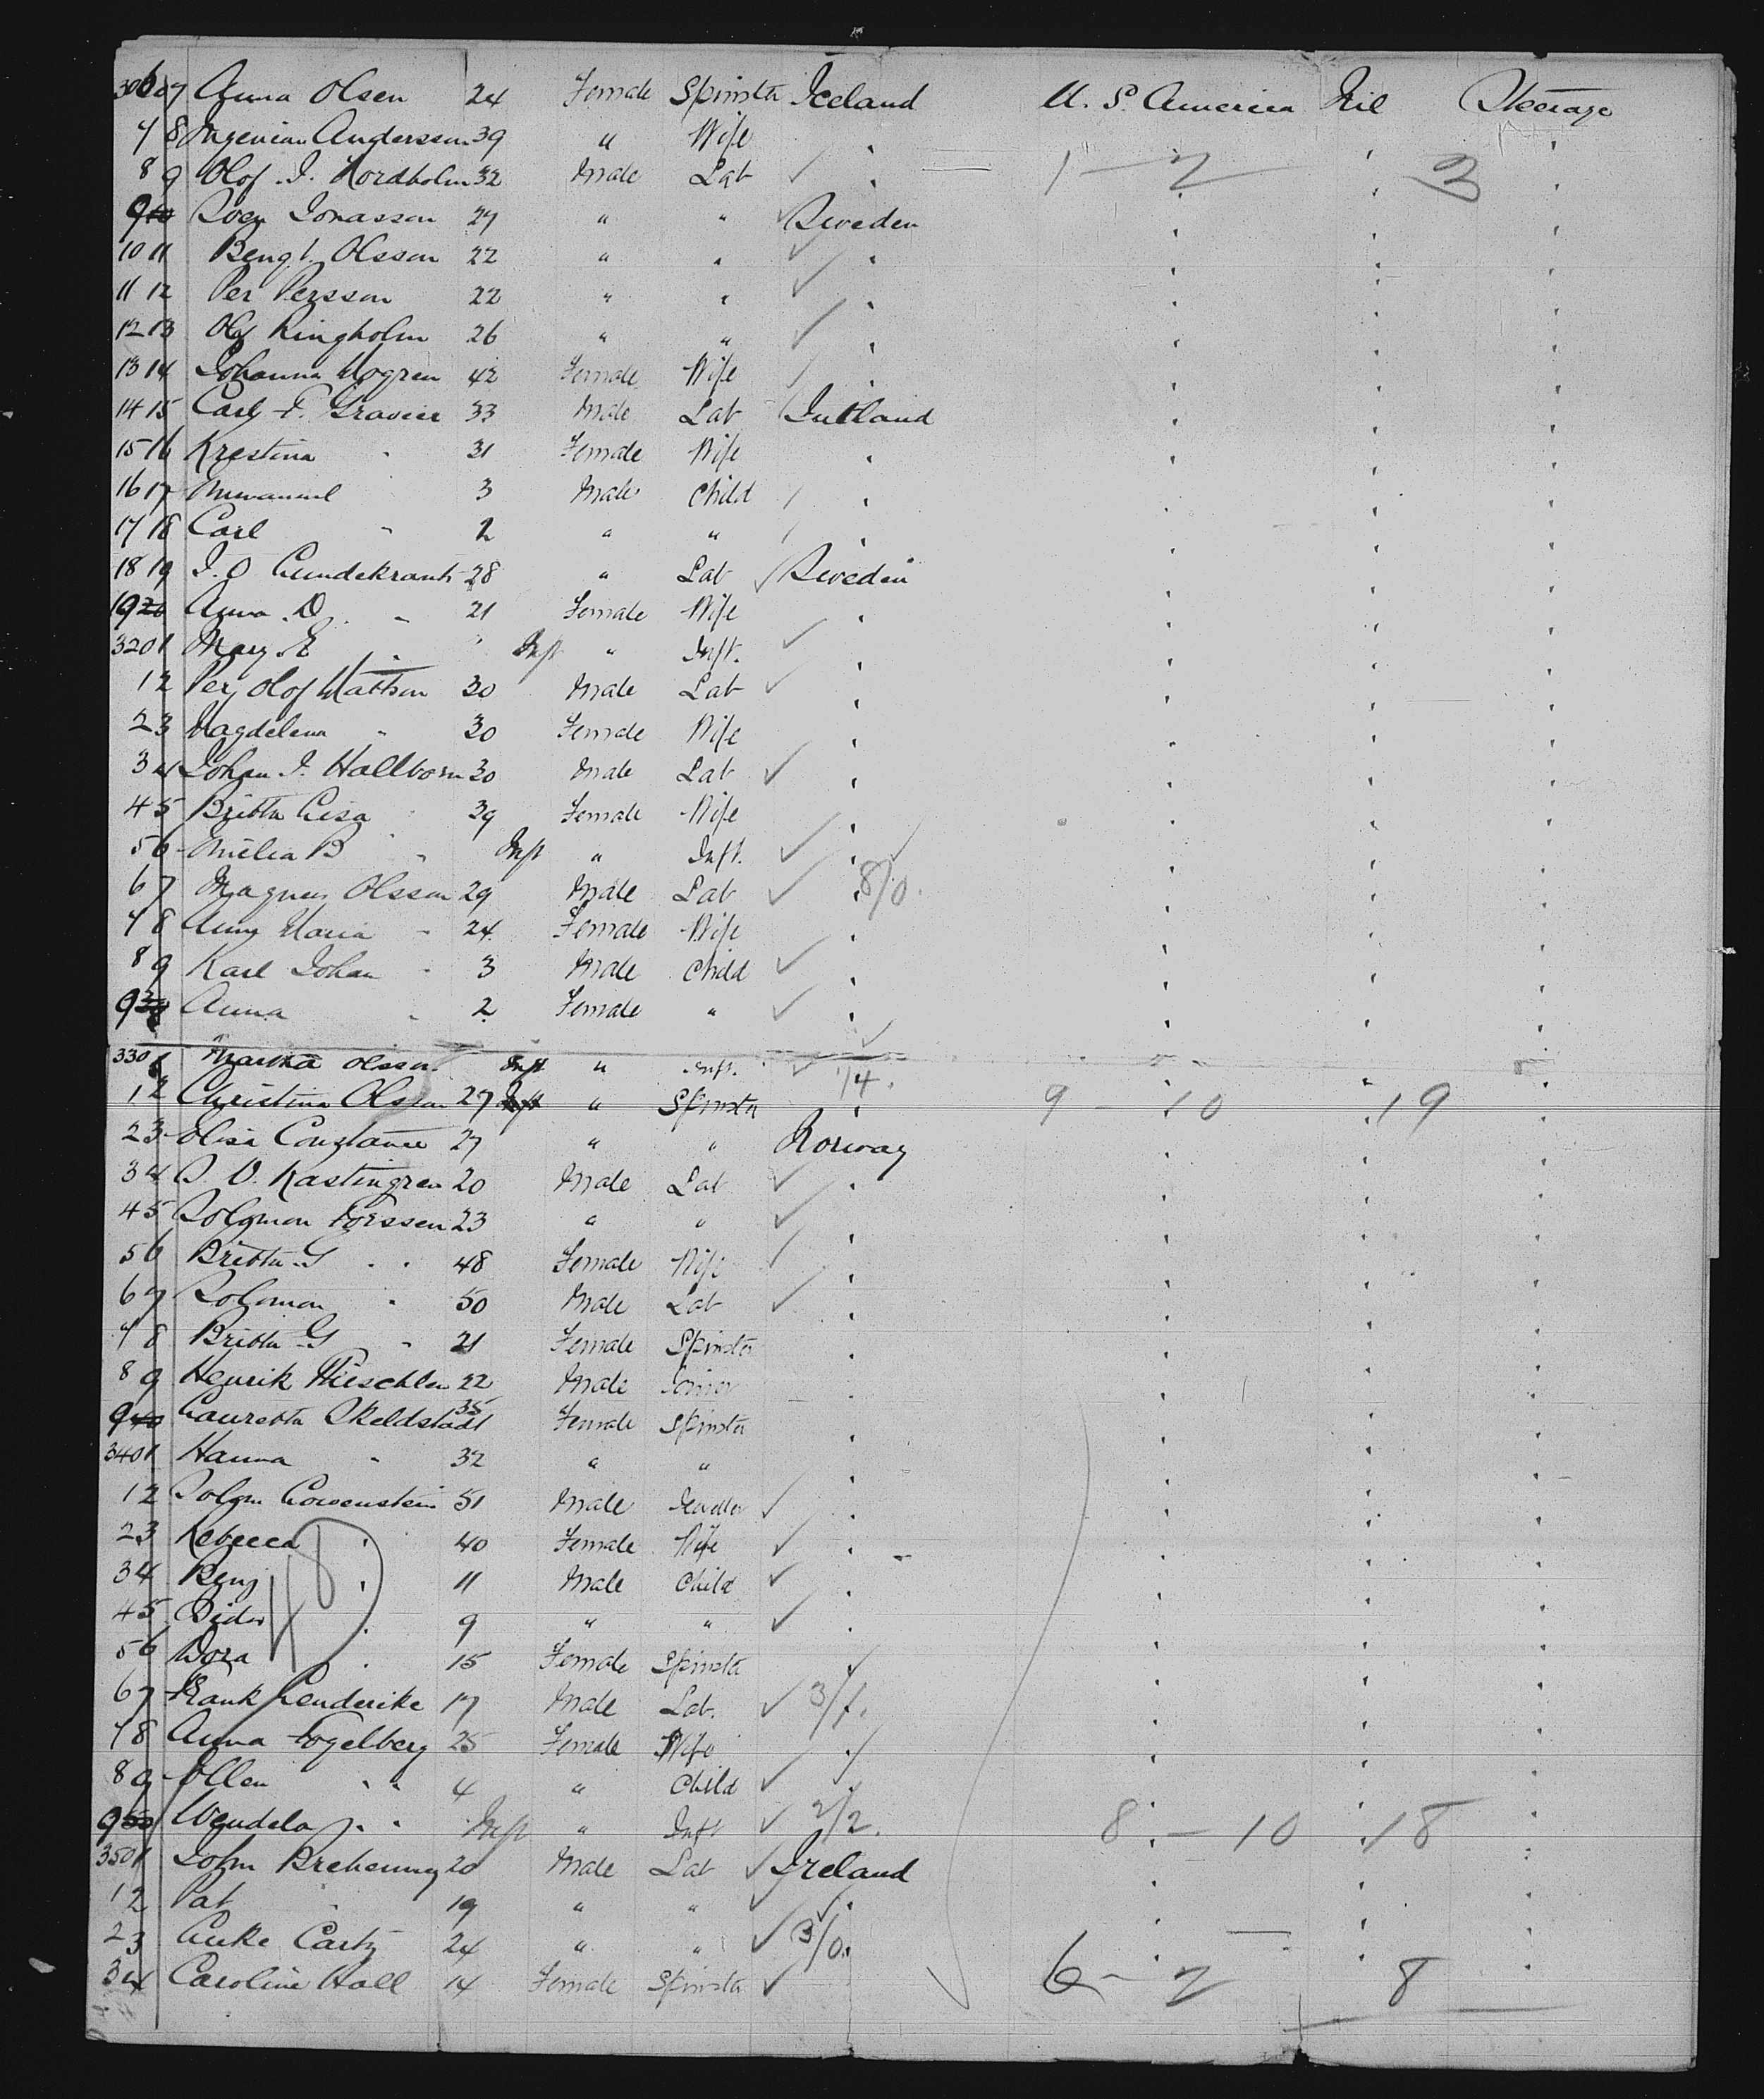 Anna Olsen 24 Female Spinster Iceland U. S. America Nil Steerage
7 8 Andersson 39 " Wife "
8 9 Olof J. Nordholm 32 Male Lab " 1 - 2 3
9 10 Sven Jonasson 27 " " Sweden
10 11 Bengt Olsson 22 " " "
11 12 Per Persson 22 " " "
12 13 Olof Ringholm 26 " " "
13 14 Johanna Mogren 42 Female Wife "
14 15 Carl F. Gravier 33 Male Lab Jutland
15 16 Krestina " 31 Female Wife "
16 17 3 Male Child "
17 18 Carl " 2 " " "
18 19 J. O 28 " Lab Sweden
19 20 Anna D. " 21 Female Wife "
320 1 Mary E " Inft " Inft. "
1 2 Per Olof Mattson 30 Male Lab "
2 3 Magdelena " 30 Female Wife "
3 4 Johan J. Hallborn 30 Male Lab "
4 5 Britta Lisa " 39 Female Wife "
5 6 B " Inft " Inft. "
6 7 Magnus Olsson 29 Male Lab " 8/0.
7 8 Anna Maria " 24 Female Wife "
8 9 Karl Johan " 3 Male Child "
9 30 Anna " 2 Female " "
330 1 Martha Olsson Inft " Inft. 1/4.
1 2 Christina Olsson 27 " Spinster " 9 - 10 19
2 3 Constance 27 " " Norway
3 4 Kastingren 20 Male Lab "
4 5 Solomon Forssen 23 " " "
5 6 Britta G " " 48 Female Wife "
6 7 Solomon " 50 Male Lab "
7 8 Britta G " 21 Female Spinster "
8 9 Henrik 22 Male "
9 40 Lauretta Skeldstadt 35 Female Spinster "
340 1 Hanna " 32 " " "
1 2 Solgm Lowenstein 51 Male "
2 3 Rebecca " 40 Female Wife "
3 4 Benj " 11 Male Child "
4 5 " 9 " " "
5 6 Dora " 15 Female Spinster "
6 7 Frank Lenderike 17 Male Lab. 3/1.
7 8 Anna Fogelberg 25 Female Wife "
8 9 Ellen " " 4 " Child "
9 50 Wendela " " Inft " Inft 2/2. 8 - 10 18
350 1 John Brehenny 20 Male Lab Ireland
1 2 Pat " 19 " " "
2 3 Carty 24 " " 3/0.
3 4 Caroline Hall 14 Female Spinster 6 - 2 8